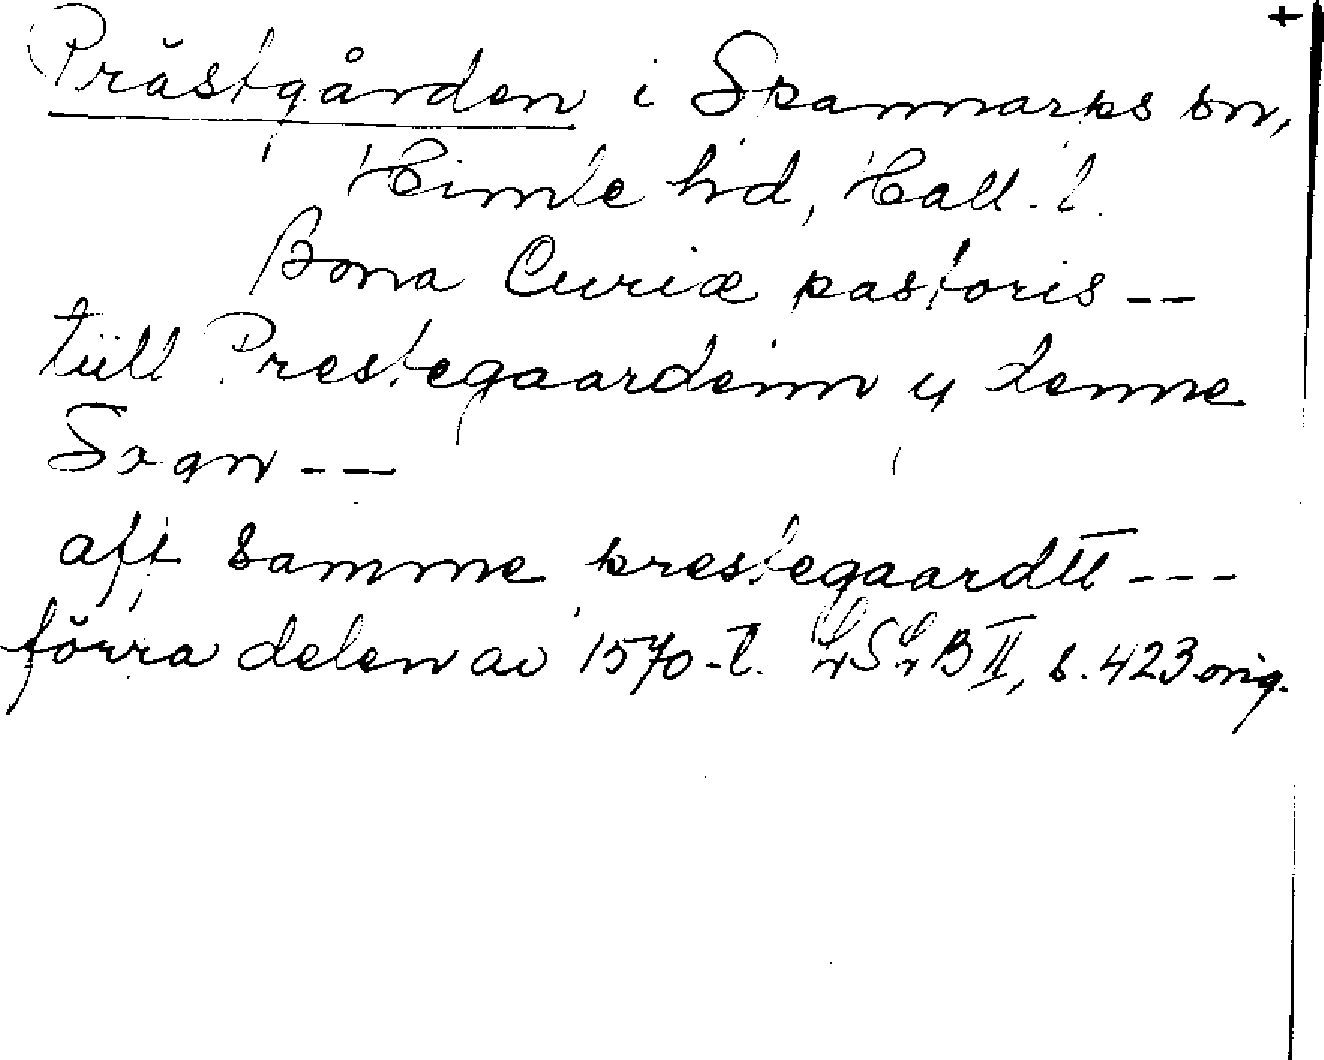 +
Prästgården i Spannarps sn,
Himle hd, Hall. l.
Bona Curiæ pastoris --
tiill Prestegaardenn y denne
Sogn --
aff samme prestegaardtt ---
förra delen av 1570-t. LSLB II, s. 423 orig.